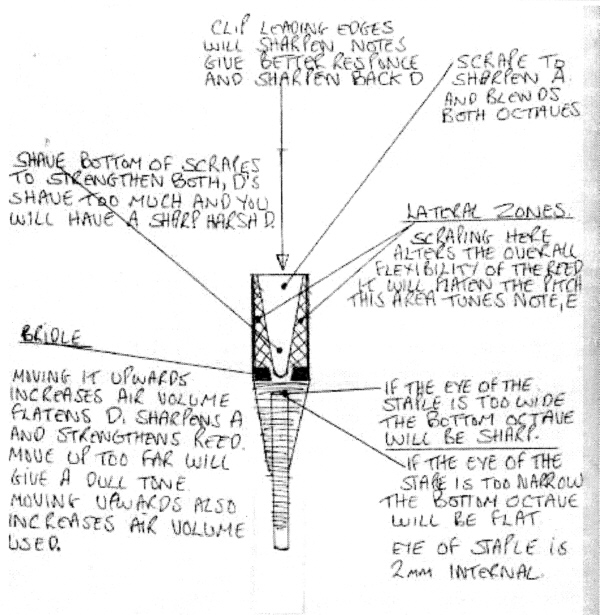 CLIP LEADING EDGES
WILL SHARPEN NOTES
GIVE BETTER RESPONCE
AND SHARPEN BACK D
SCRAPE TO
SHARPEN A.
AND BLENDS
BOTH OCTAVES
SHAVE BOTTOM OF SCRAPES
TO STRENGTHEN BOTH, D'S
SHAVE TOO MUCH AND YOU
WILL HAVE A SHARP HARSH D.
LATERAL ZONES.
SCRAPING HERE
ALTERS THE OVERALL
FLEXIBILITY OF THE REED
IT WILL FLATEN THE PITCH
THIS AREA TUNES NOTE, E
BRIDLE
MOVING IT UPWARDS
INCREASES AIR VOLUME
FLATENS D. SHARPENS A
AND STRENGTHENS REED.
MOVE UP TOO FAR WILL
GIVE A DULL TONE
MOVING UPWARDS ALSO
INCREASES AIR VOLUME
USED.
IF THE EYE OF THE
STAPLE IS TOO WIDE
THE BOTTOM OCTAVE
WILL BE SHARP.
IF THE EYE OF THE
STAPLE IS TOO NARROW
THE BOTTOM OCTAVE
WILL BE FLAT
EYE OF STAPLE IS
2MM INTERNAL.